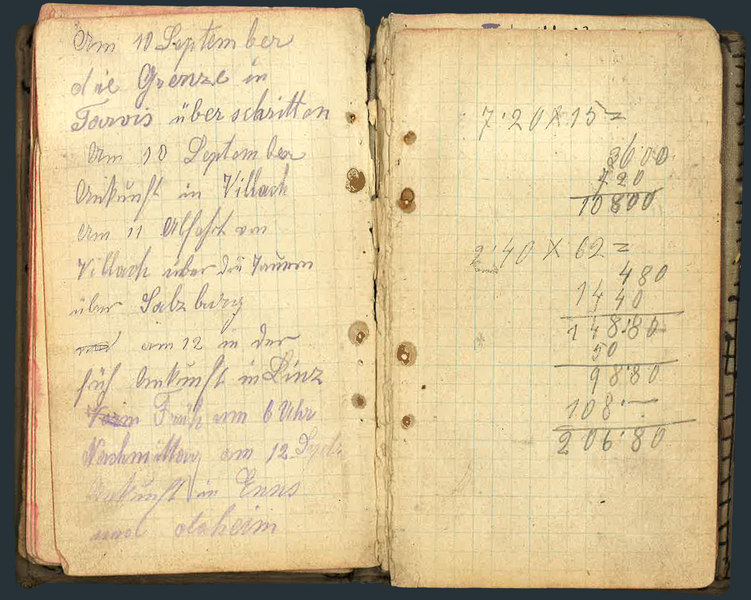 Am 10 September
die Grenze in
Tarvis überschritten
Am 10 September
Ankunft in Villach
Am 11 Abfahrt von
Villach über die Tauern
über Salzburg
am 12 in der
früh Ankunft in Linz
Früh um 6 Uhr
Nachmittag am 12 Sept.
Ankunft in Enns
und daheim
7·20 X 15=
36·00
7 20
108 00
2·40 X 62=
4 80
14 40
148·80
50
98·80
108·—
206·80